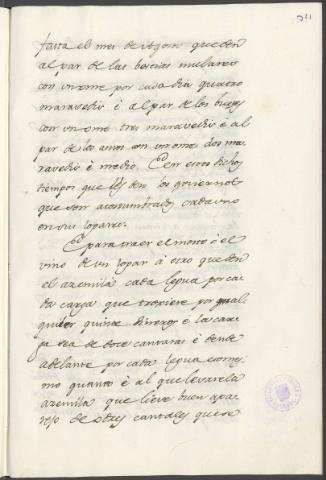 fasta el mes de agosto que den
al par de las bestias mulares
con un ome por cada dia quatro
maravedis è al par de los bueyes
con un ome tres maravedis è al
par de los asnos con un ome dos ma
ravedis è medio. Et en estos dichos
tiempos que les den los goviernos
que son acostumbrados cada uno
en sus logares.
Et para traer el mosto ò el
vino de un logar à otro que den
el azemila cada legua por ca
da carga que troxiere por qual
quier quince dineros è la car
ga sea de doce cantaras è dende
adelante por cada legua como
mo quanto è al que levare la
azemila que lieve buen apa
rejo de otres cantales que